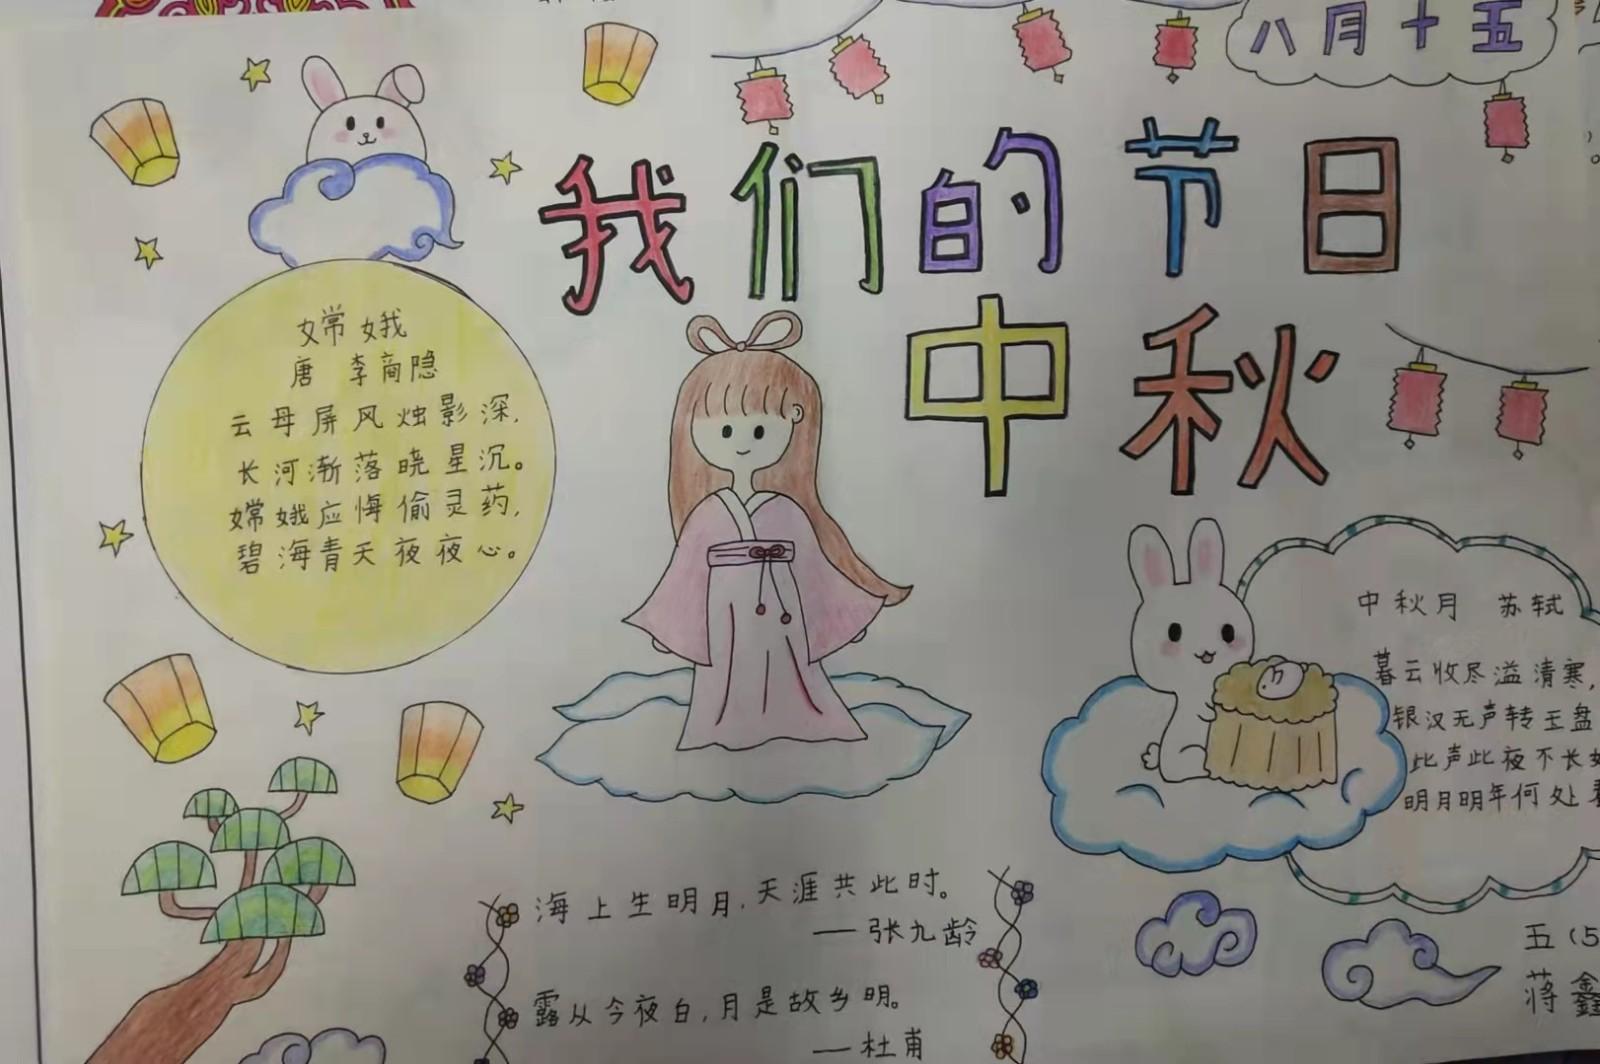 八月十五
我们的节日
中秋
嫦娥
唐 李商隐
云母屏风烛影深,
长河渐落晓星沉。
嫦娥应悔偷灵药,
碧海青天夜夜心。
中秋月 苏轼
暮云收尽溢清寒,
银汉无声转玉盘
此声此夜不长
明月明年何处
海上生明月,天涯共此时。
——张九龄
露从今夜白,月是故乡明。
——杜甫
五(5
蒋鑫